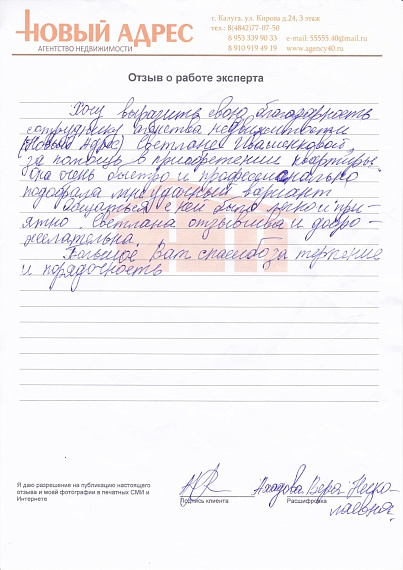 НОВЫЙ АДРЕС
АГЕНТСТВО НЕДВИЖИМОСТИ
г. Калуга, ул. Кирова д.24, 3 этаж
тел.: 8(4842)77-07-50
8 953 339 90 33 e-mail: 55555.40@mail.ru
8 910 919 49 19 www.agency40.ru
Отзыв о работе эксперта
Хочу выразить свою благодарность
сотруднику агенства недвижимости
(Новый Адрес) Светлане Ивашенковой,
за помощь в приобретении квартиры
Она очень быстро и професcионально
подобрала мне удачный вариант
Общаться с ней было легко и при-
ятно. Светлана отзывшива и добро-
желательна.
Большое Вам спасибо за терпение
и порядочность
Я даю разрешения на публикацию настоящего
отзыва и моей фотографии в печатных СМИ и
Интернете
Подпись клиента
Вера Нико-
лаевна
Расшифровка